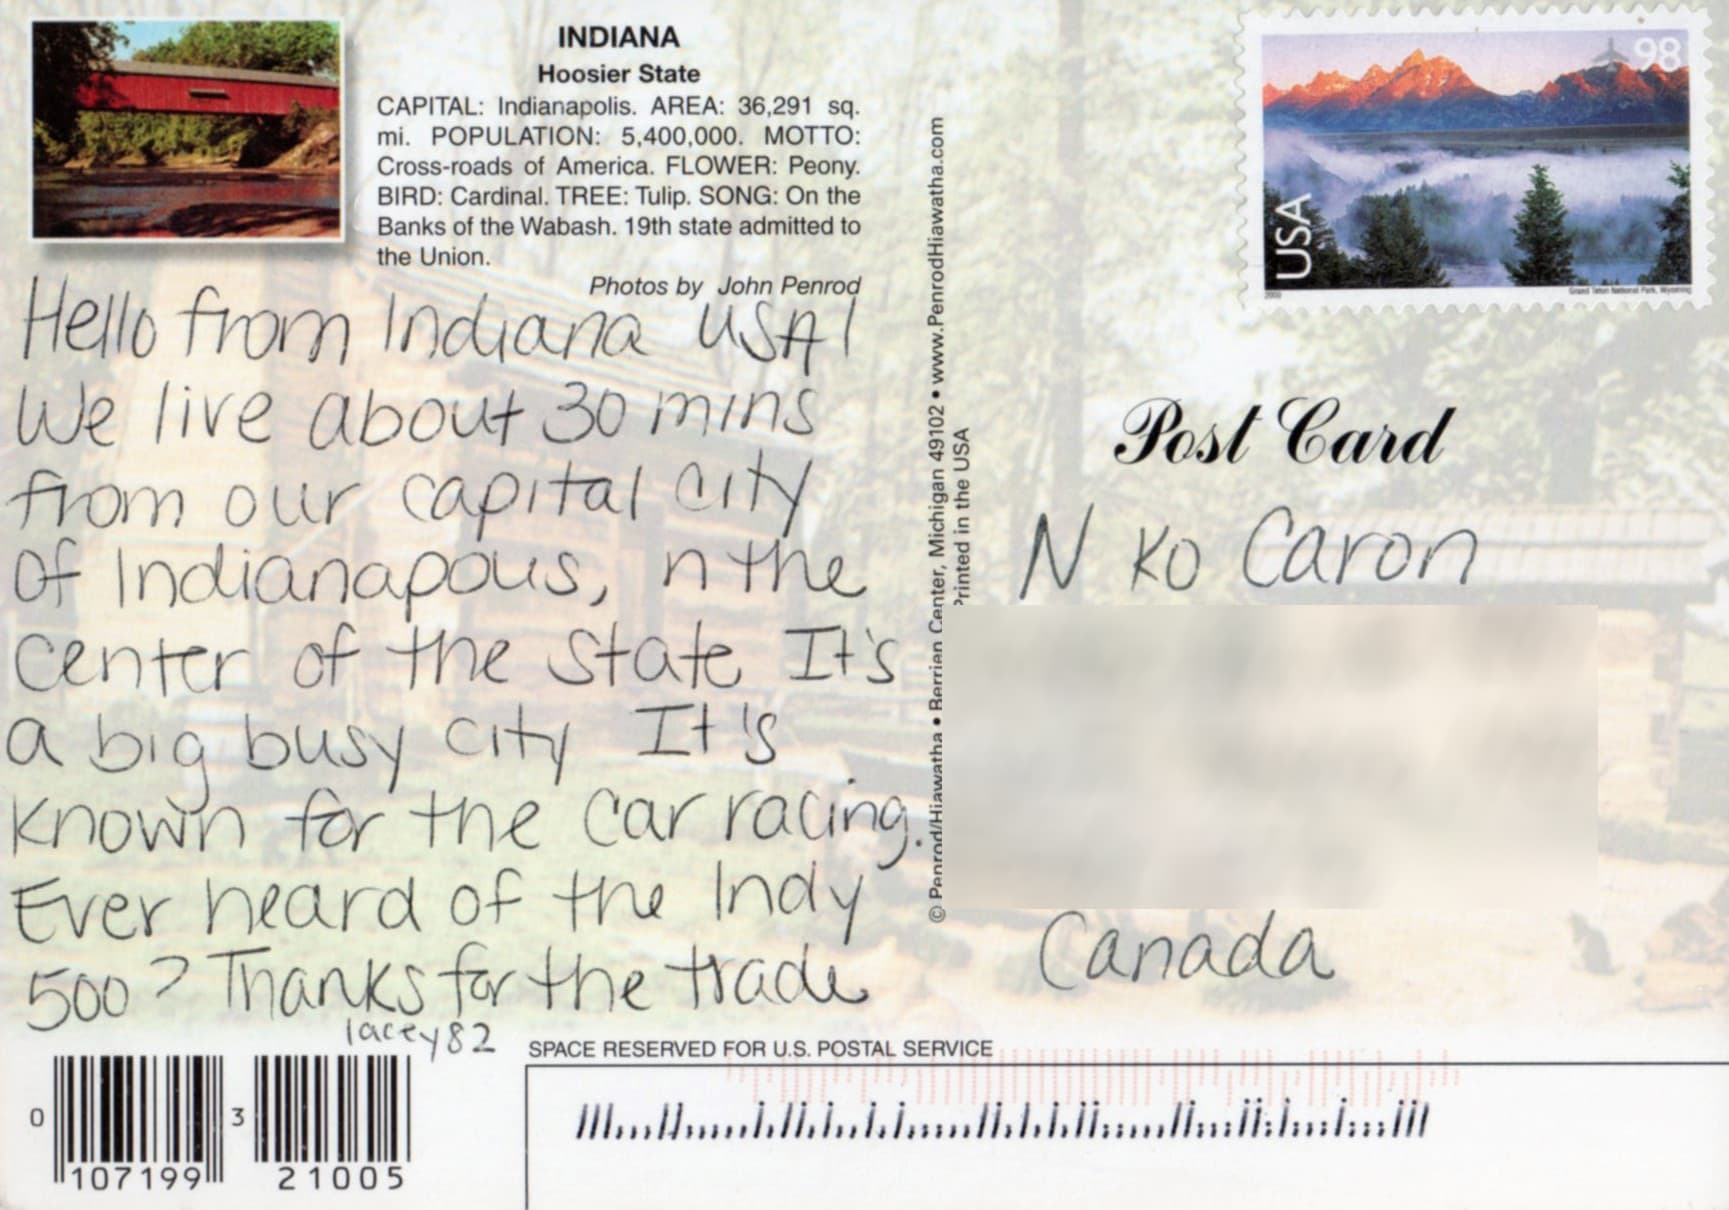 INDIANA
Hoosier State
CAPITAL: Indianapolis. AREA: 36,291 sq.
mi. POPULATION: 5,400,000. MOTTO:
Cross-roads of America. FLOWER: Peony.
BIRD: Cardinal. TREE: Tulip. SONG: On the
Banks of the Wabash. 19th state admitted to
the Union.
Photos by John Penrod
Hello from Indiana USA!
We live about 30 mins
from our capital city
of Indianapolis, n the
center of the state It's
a big busy city It's
known for the car racing.
Ever heard of the Indy
500? Thanks for the trade
lacey82
0 107199 3 21005
© Penrod/Hiawatha • Berrien Center, Michigan 49102 • www.PenrodHiawatha.com
Printed in the USA
98
USA
2009
Grand Teton National Park, Wyoming
Post Card
N ko Caron
Canada
SPACE RESERVED FOR U.S. POSTAL SERVICE